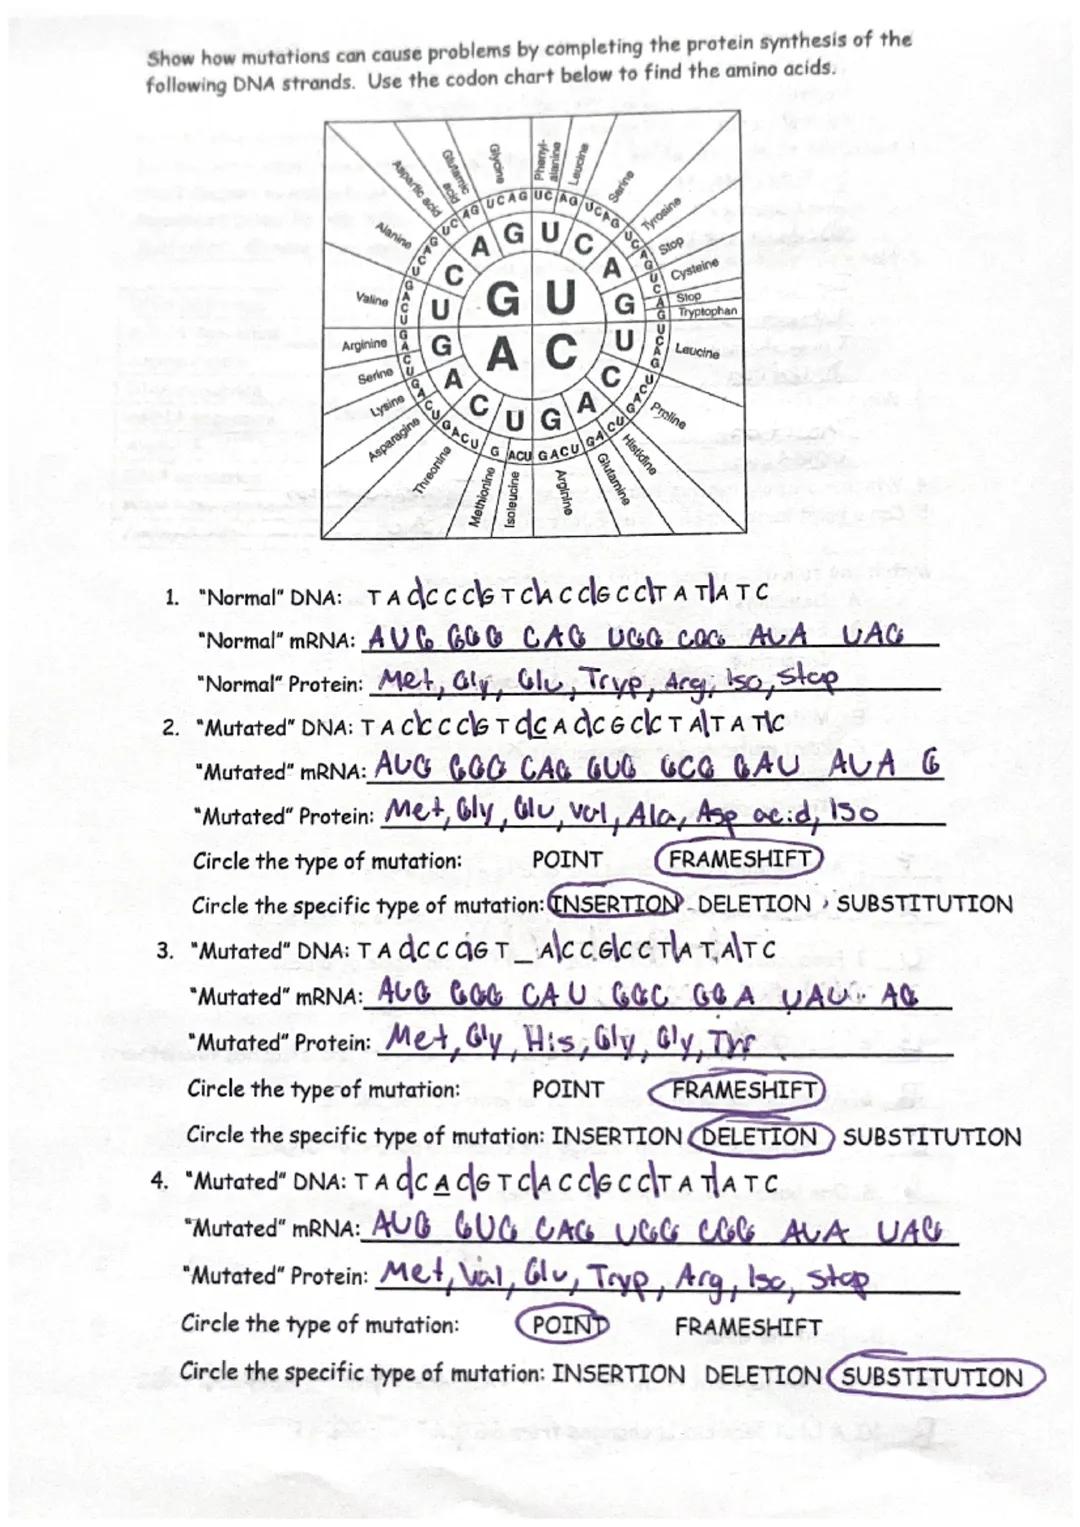 Show how mutations can cause problems by completing the protein synthesis of the
following DNA strands. Use the codon chart below to find the amino acids.
Aspartic acid
Glutamic acid
Glycine
Phenyl-alanine
Leucine
Serine
Tyrosine
Stop
Cysteine
Stop
Tryptophan
Leucine
Proline
Histidine
Glutamine
Arginine
Isoleucine
Methionine
Threonine
Asparagine
Lysine
Serine
Arginine
Valine
Alanine
G U
A C
1. "Normal" DNA: T A C C C C G T C A C C G C C T A T A T C
"Normal" mRNA: AUG GGG CAG UGG CGG AUA UAG
"Normal" Protein: Met, Gly, Glu, Tryp, Arg, Iso, Stop
2. "Mutated" DNA: T A C C C C G T C C A C C G C C T A T A T C
"Mutated" mRNA: AUG GGG CAG GUG GCG GAU AUA G
"Mutated" Protein: Met, Gly, Glu, Val, Ala, Asp acid, Iso
Circle the type of mutation: POINT FRAMESHIFT
Circle the specific type of mutation: INSERTION DELETION SUBSTITUTION
3. "Mutated" DNA: T A C C C C G T _ A C C G C C T A T A T C
"Mutated" mRNA: AUG GGG CAU GGC GGA UAU AG
"Mutated" Protein: Met, Gly, His, Gly, Gly, Tyr
Circle the type of mutation: POINT FRAMESHIFT
Circle the specific type of mutation: INSERTION DELETION SUBSTITUTION
4. "Mutated" DNA: T A C C A C G T C A C C G C C T A T A T C
"Mutated" mRNA: AUG GUG CAG UGG CGG AUA UAG
"Mutated" Protein: Met, Val, Glu, Tryp, Arg, Iso, Stop
Circle the type of mutation: POINT FRAMESHIFT
Circle the specific type of mutation: INSERTION DELETION SUBSTITUTION